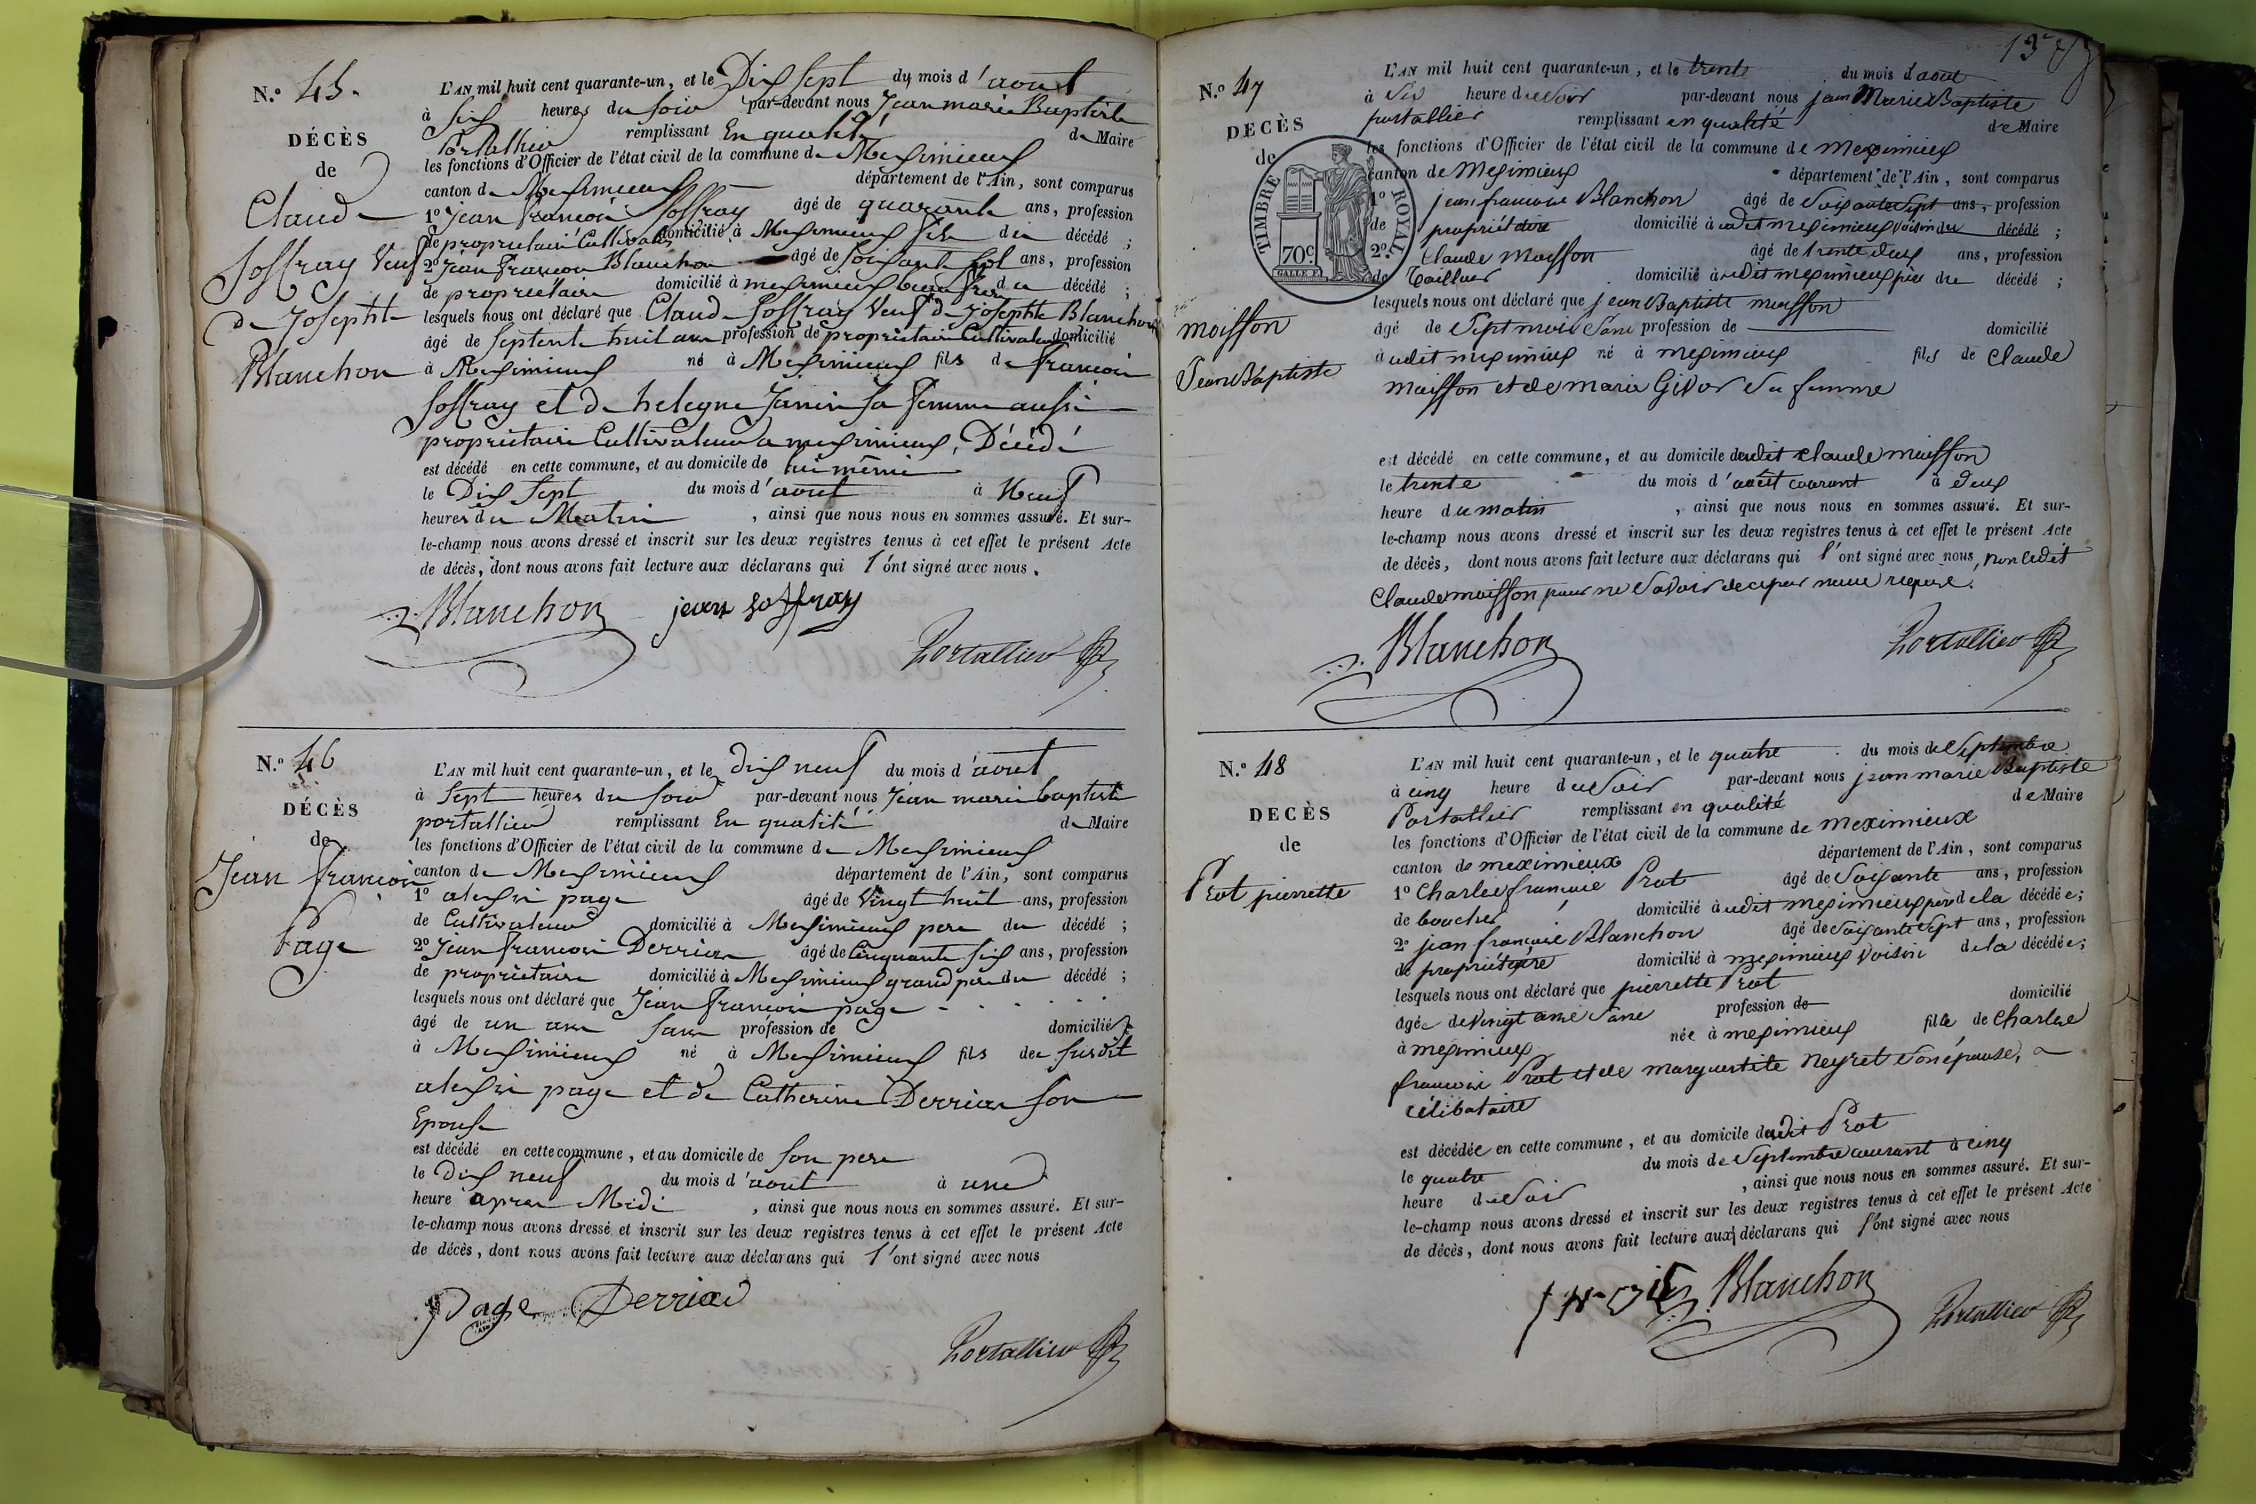 N.º 45.
DÉCÈS
de
Claude
Joffray Veuf
de Josephte
Blanchon
L'AN mil huit cent quarante-un, et le Dix Sept du mois d'aout
à Six heures du soir par-devant nous Jean marie Baptiste
Portallier remplissant En qualité de Maire
les fonctions d'Officier de l'état civil de la commune de Meximieux
canton de Meximieux département de l'Ain, sont comparus
1º Jean françois Joffray âgé de quarante ans, profession
de proprietaire Cultivateur domicilié à Meximieux fils du décédé ;
2º Jean françois Blanchon âgé de soixante Sept ans, profession
de proprietaire domicilié à meximieux beau frere du décédé ;
lesquels nous ont déclaré que Claude Joffray Veuf de Josephte Blanchon
âgé de Septente huit ans profession de proprietaire Cultivateur domicilié
à Meximieux né à Meximieux fils de françois
Joffray et de helegne Janin sa femme aussi
proprietaire Cultivateur a meximieux, Décédé
est décédé en cette commune, et au domicile de lui même
le Dix Sept du mois d'aout à Neuf
heures du Matin , ainsi que nous nous en sommes assuré. Et sur-
le-champ nous avons dressé et inscrit sur les deux registres tenus à cet effet le présent Acte
de décès, dont nous avons fait lecture aux déclarans qui l'ont signé avec nous.
Blanchon jean joffray
Portallier
N.º 46
DÉCÈS
de
Jean françois
Page
L'AN mil huit cent quarante-un, et le dix neuf du mois d'aout
à Sept heures du soir par-devant nous Jean marie baptiste
portallier remplissant En qualité de Maire
les fonctions d'Officier de l'état civil de la commune de Meximieux
canton de Meximieux département de l'Ain, sont comparus
1º alexi page âgé de Vingt huit ans, profession
de Cultivateur domicilié à Meximieux pere du décédé ;
2º Jean françois Derrias âgé de Cinquante six ans, profession
de proprietaire domicilié à Meximieux grand pere du décédé ;
lesquels nous ont déclaré que Jean françois page
âgé de un ans sans profession de domicilié
à Meximieux né à Meximieux fils de susdit
alexi page et de Catherine Derrias son
Epouse
est décédé en cette commune, et au domicile de son pere
le dix neuf du mois d'aout à une
heure apres Midi , ainsi que nous nous en sommes assuré. Et sur-
le-champ nous avons dressé et inscrit sur les deux registres tenus à cet effet le présent Acte
de décès, dont nous avons fait lecture aux déclarans qui l'ont signé avec nous
Page Derriad
Portallier
N.º 47
DECÈS
de
moisson
Jean Baptiste
TIMBRE ROYAL
70c
L'AN mil huit cent quarante-un, et le trente du mois d'aout
à Six heure du soir par-devant nous jean Marie Baptiste
portallier remplissant en qualité de Maire
les fonctions d'Officier de l'état civil de la commune de meximieux
canton de meximieux département de l'Ain, sont comparus
1º jean françois Blanchon âgé de soixante sept ans, profession
de propriétaire domicilié à udit meximieux voisin du décédé ;
2º Claude moisson âgé de trente deux ans, profession
de tailleur domicilié à udit meximieux père du décédé ;
lesquels nous ont déclaré que jean Baptiste moisson
âgé de sept mois sans profession de domicilié
à udit meximieux né à meximieux fils de Claude
moisson et de marie Givor sa femme
est décédé en cette commune, et au domicile dudit Claude moisson
le trente du mois d'août courant à deux
heure du matin , ainsi que nous nous en sommes assuré. Et sur-
le-champ nous avons dressé et inscrit sur les deux registres tenus à cet effet le présent Acte
de décès, dont nous avons fait lecture aux déclarans qui l'ont signé avec nous, non ledit
Claude moisson pour ne savoir de ce par nous requis.
Blanchon
Portallier
N.º 48
DECÈS
de
Prot pierrette
L'AN mil huit cent quarante-un, et le quatre du mois de septembre
à cinq heure du soir par-devant nous jean marie Baptiste
Portallier remplissant en qualité de Maire
les fonctions d'Officier de l'état civil de la commune de meximieux
canton de meximieux département de l'Ain, sont comparus
1º Charles françois Prot âgé de soixante ans, profession
de boucher domicilié à udit meximieux père de la décédée ;
2º jean françois Blanchon âgé de soixante sept ans, profession
de propriétaire domicilié à meximieux voisin de la décédée ;
lesquels nous ont déclaré que pierrette Prot
âgée de vingt ans sans profession de domicilié
à meximieux née à meximieux fille de Charles
françois Prot et de marguerite Neyret son épouse,
célibataire
est décédée en cette commune, et au domicile dudit Prot
le quatre du mois de septembre courant à cinq
heure du soir , ainsi que nous nous en sommes assuré. Et sur-
le-champ nous avons dressé et inscrit sur les deux registres tenus à cet effet le présent Acte
de décès, dont nous avons fait lecture aux déclarans qui l'ont signé avec nous
Blanchon
Portallier